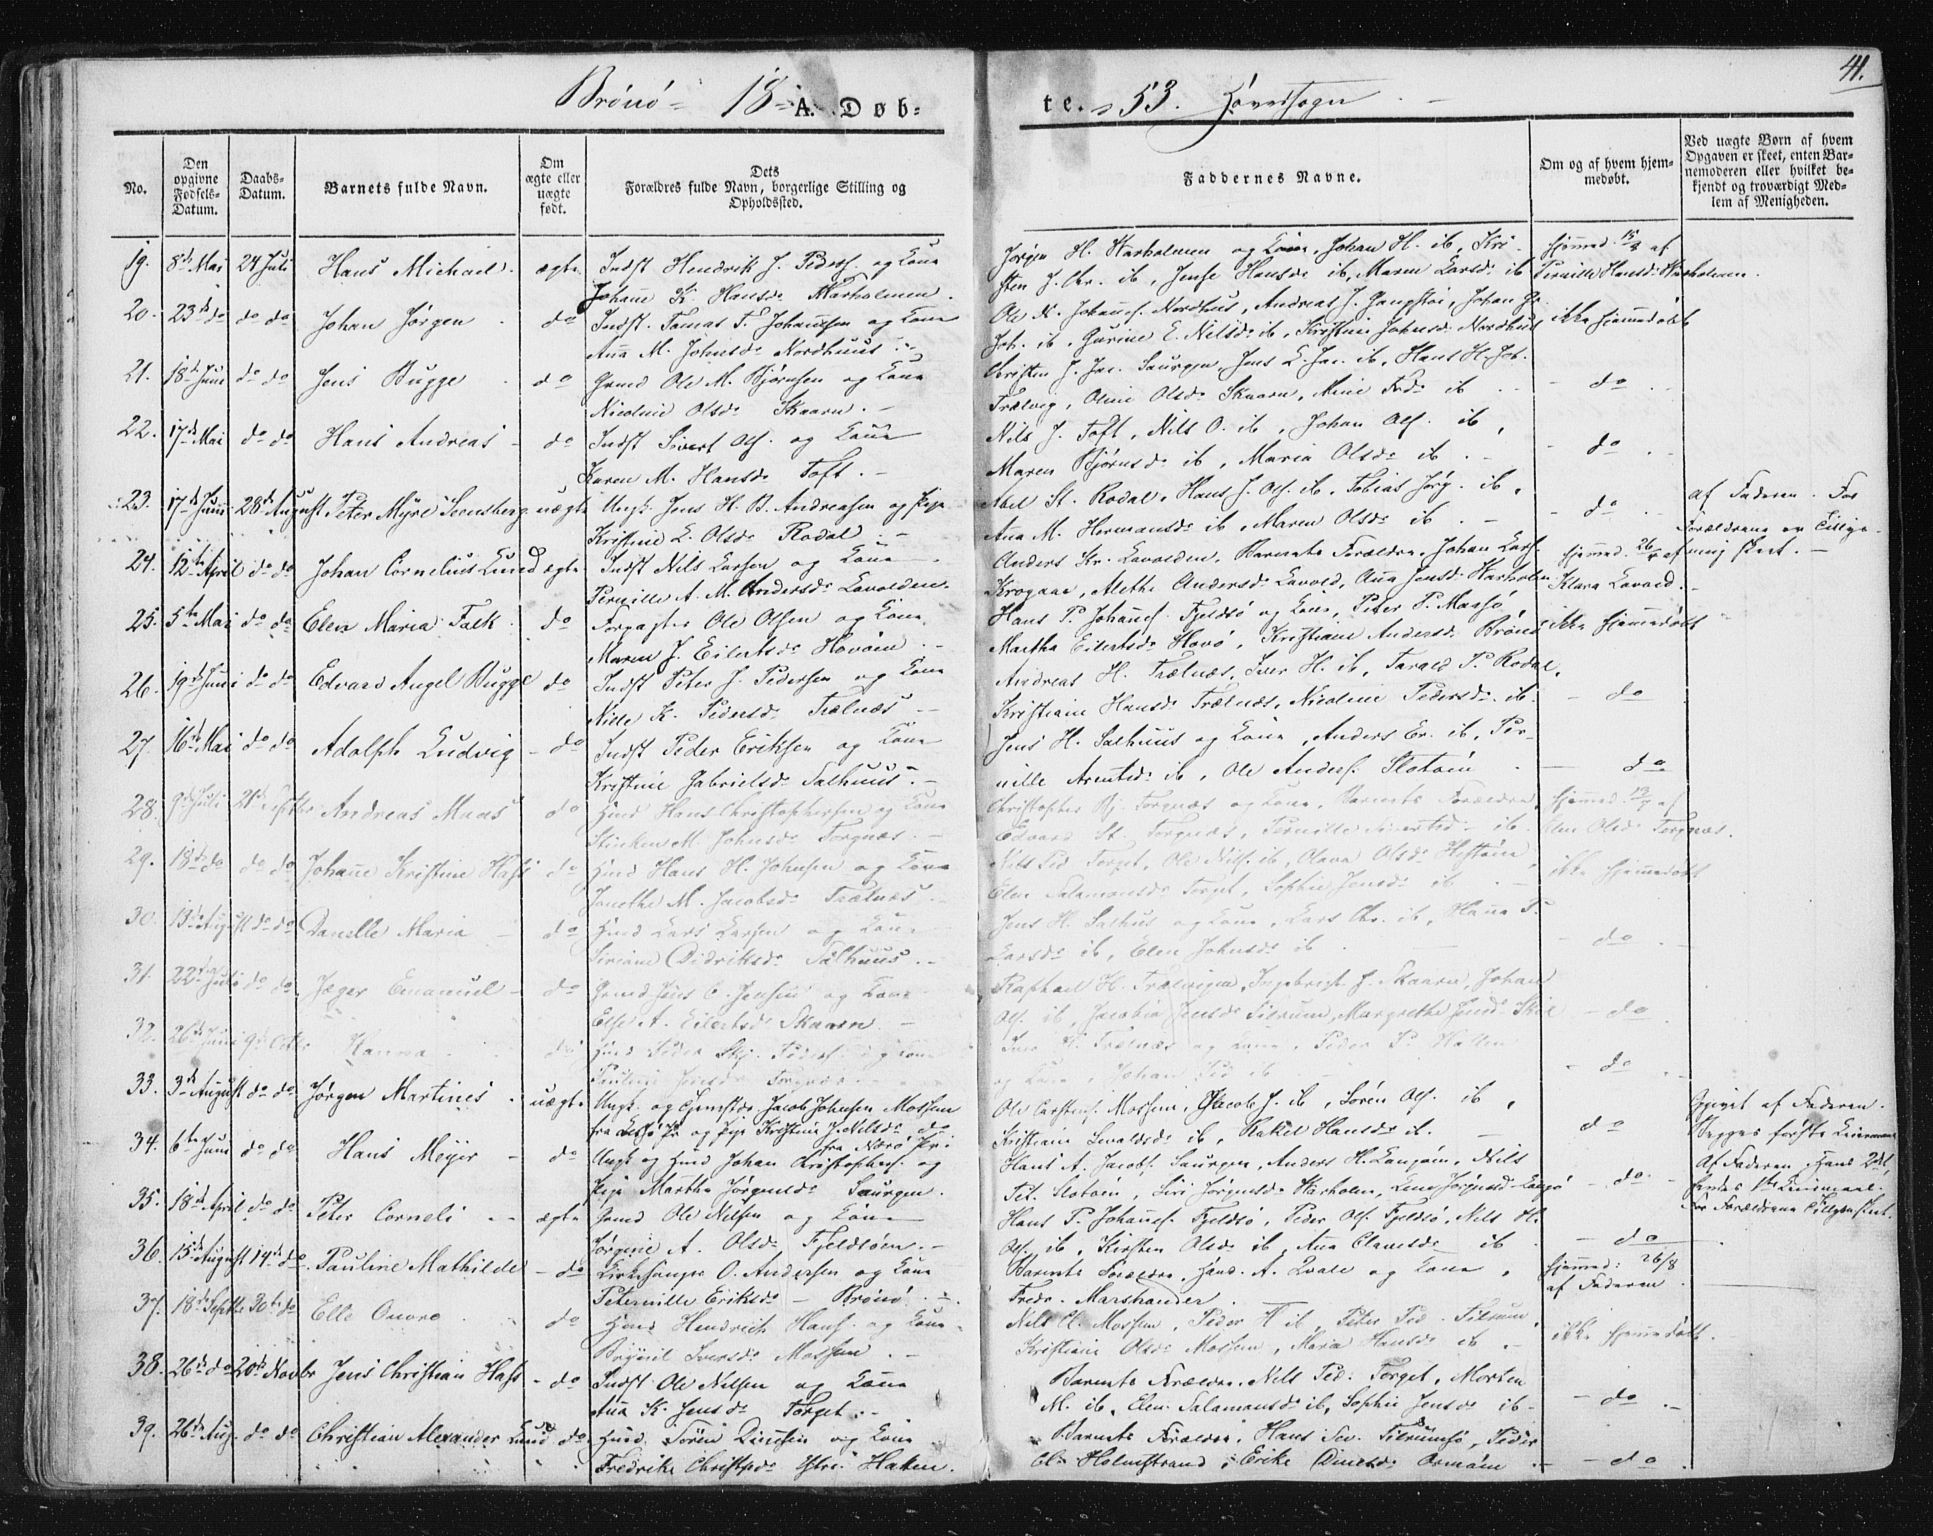 Brönö 18 A. Døb-
te. 53. Hovedsogn
41.
No.
Den opgivne Fødsels-Datum.
Daabs-Datum.
Barnets fulde Navn.
Om ægte eller uægte født.
Dets Forældres fulde Navn, borgerlige Stilling og Opholdssted.
Faddernes Navne.
Om og af hvem hjem-medøbt.
Ved uægte Børn af hvem Opgaven er skeet, enten Bar-nemoderen eller hvilket be-kjendt og troværdigt Med-lem af Menigheden.
19. 8de Mai 24 Juli Hans Michael. ægte Indst Hendrik J. Peders. og Kone
Johane K. Hansdr Harholmen.
Jörgen H. Harholmen og Kone, Johan H. ib, Kri-
sten J. Chr. ib, Jense Hansdr ib, Maren Larsdr ib
Hjemmed. af
Pernille Hansdr Harholmen.
20. 23de do do do Johan Jörgen do Indst. Tomas T. Johannesen og Kone
Ana M. Johnsdr Nordhuus.
Ole N. Johannes. Nordhus, Andreas J.
Joh. ib, Gurine E. Nilsdr ib, Kristine Johnsdr Nordhuus
ikke hjemmedøbt
21. 18de Juni do do Jens Bugge do Grmd Ole M. Björnsen og Kone
Nicoline Olsdr Skaarn.
Christen J. Jac. Saurgen, Jens L. Jac. ib, Hans H. Joh.
Trælvig, Oline Olsdr Skaarn, ib
do
22. 17de Mai do do Hans Andreas do Indst Sivert Ols. og Kone
Karen M. Hansdr Toft.
Nils J. Toft, Nils O. ib, Johan Ols. ib,
Maren Björnsdr ib, Maria Olsdr ib.
do
23. 17de Juni 28de August Peter Myre Svensberg uægte Ungk. Jens H. B. Andreasen og Pige
Kristine L. Olsdr Rodal.
Abel St. Rodal, Hans J. Ols. ib, Tobias Jörg. ib,
Ana M. Hermansdr ib, Maren Olsdr ib.
do
af Faderen. For
Forældrene er Tillys-
ning skeet.
24. 12te April do do Johan Cornelius Lund ægte Indst Nils Larsen og Kone
Pernille A. M. Andersdr Lavolden.
Anders Kr. Lavolden, Barnets Forældre, Johan Lars.
Krogaae, Alethe Andersdr Lavold, Ana Jensdr Harholm
Hjemmed. af
Klara Lavold.
25. 5te Mai do do Elen Maria Falk do Forpagter Ole Olsen og Kone
Maren J. Eilertsdr Havöen.
Hans P. Johanes. Fjeldsö og Kone, Peter P. Maasö,
Martha Eilertsdr Havö, Kristiane Andersdr Brönö
ikke hjemmedøbt
26. 19de Juni do do Edvard Angel Bugge do Indst Peter J. Pedersen og Kone
Nille K. Pedersdr Trælnæs.
Andreas H. Trælnæs, Iver H. ib, Tarald P. Rodal,
Kristiane Hansdr Trælnæs, Nicoline Pedersdr ib.
do
27. 16de Mai do do Adolph Ludvig do Indst Peder Eriksen og Kone
Kristine Gabrielsdr Salhuus.
Jens H. Salhuus og Kone, Anders Er. ib, Per-
nille Arentsdr ib, Ole Anders. Slotöen
do
28. 9de Juli 21de Septbr Andreas Maas do Huusmd Hans Christophersen og Kone
Stinken M. Johnsdr Torgnæs.
Christopher Bj. Torgnæs og Kone, Barnets Forældre,
Edvard St. Torgnæs, Pernille Sivertsdr ib.
Hjemmed. af
Elen Olsdr Torgnæs.
29. 18de do do do Johane Kristine Hass do Huusmd Hans H. Johnsen og Kone
Jonethe M. Jacobsdr Trælnæs.
Nils Ped. Torget, Ole Nils. ib, Olava Olsdr Hestöen,
Elen Salamonsdr Torget, Sophie Jensdr ib
ikke hjemmedøbt
30. 13de August do do Danelle Maria do Huusmd Lars Larsen og Kone
Siriane Didriksdr Salhuus.
Jens H. Salhus og Kone, Lars Chr. ib, Hana P.
Larsdr ib, Elen Johnsdr ib.
do
31. 22de Juli do do Jæger Emanuel do Grmd Jens C. Jensen og Kone
Else A. Eilertsdr Skaarn.
Raphael H. Trælvigen, Ingebrigt J. Skaarn, Johan
Ols. ib, Jacobia Jensdr Tilrum, Margrethe Jensdr
do
32. 26de Juni 9de Octbr Hanna do Huusmd Peder og Kone
Pauline Jensdr Torgnæs.
Iver H. Trælnæs og Kone, Peder P. Hatten
og Kone, Johan Ped. ib
do
33. 3de August do do Jörgen Martines uægte Ungk. og Tjenestdr Jacob Johnsen Mossem
og Pige Kristine J. Nilsdr do
fra Nærö
Ole Carstens. Mossem, Jacob J. ib, Sören Ols. ib,
Kristiane Sivaldsdr ib, Rakel Hansdr ib.
do
Opgivet af Faderen.
Begges förste Leiermaal
34. 6te Juni do do Hans Meyer do Ungk og Huusmd Johan Kristophers. og
Pige Martha Jörgensdr Saurgen.
Hans A. Jacobs. Saurgen, Anders H. Langöen, Nils
Pet. Slotöen, Siri Jörgensdr Harholm, Lene Jörgensdr Langö
do
Af Faderen, Hans 2det,
hendes 1ste Leiermaal.
For Forældrene Tillysn. skeet.
35. 18de April do do Peter Corneli ægte Grmd Ole Nilsen og Kone
Jörgine A. Olsdr Fjeldsöen.
Hans P. Johannes. Fjeldsö, Peder Ols. Fjeldsö, Nils H.
Ols. ib, Kirsten Olsdr ib, Ana Clausdr ib
do
36. 15de August 14de do Pauline Mathilde do Kirkesanger O. Andersen og Kone
Petternille Eriksdr Brönö.
Barnets Forældre, Hans A. Qvale og Kone,
Fredr. Marshander.
Hjemmed: 26/8
af Faderen.
37. 18de Septbr 30te do Elle Onore do Huusmd Hendrich Hans. og Kone
Iversdr Mossem.
Nils Mossem, Peder H ib, Peter Ped. Tilrum,
Kristiane Olsdr Mossem, Maria Hansdr ib
ikke hjemmedøbt.
38. 26de do 20de Novbr Jens Christian Hass do Indst Ole Nilsen og Kone
Ana K. Jensdr Torget.
Barnets Forældre, Nils Ped. Torget, Morten
M. ib, Elen Salamonsdr ib, Sophie Jensdr ib
do
39. 26de Aug. do do Christian Alexander Lund do Huusmd. Sören Dinesen og Kone
Fredrikke Christsdr Ytre Haten.
Barnets Forældre, Hans Siv. Tilrumsö, Peder
Holmstrand, Erike Dinesdr Ormöen
do